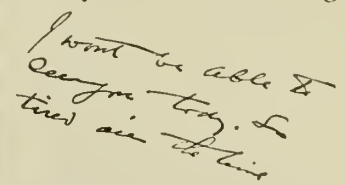 I wont be able to
see you today. So
tired all the time